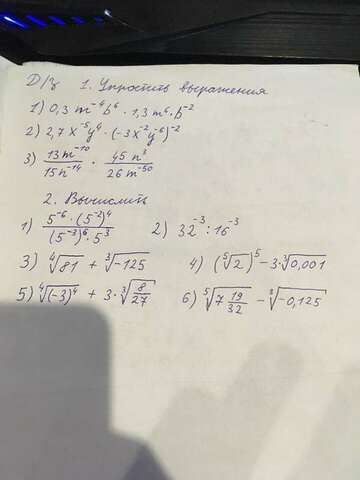 Д/з 1. Упростить выражения
1) 0,3 m⁻⁴b⁶ · 1,3 m⁶ · b⁻²
2) 2,7 x⁻⁵y⁴ · (-3x⁻²y⁻⁶)⁻²
3) 13m⁻¹⁰/15n⁻¹⁴ · 45n³/26m⁻⁵⁰
2. Вычислить
1) 5⁻⁶ · (5⁻²)⁴/(5⁻³)⁶ · 5³ 2) 32⁻³ : 16⁻³
3) ⁴√81 + ³√-125 4) (⁵√2)⁵ - 3·³√0,001
5) ⁴√(-3)⁴ + 3 · ³√8/27 6) ⁵√7 19/32 - ³√-0,125